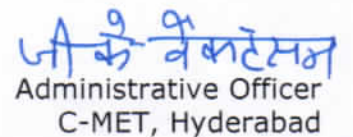 जी के वेंकटेसम
Administrative Officer
C-MET, Hyderabad